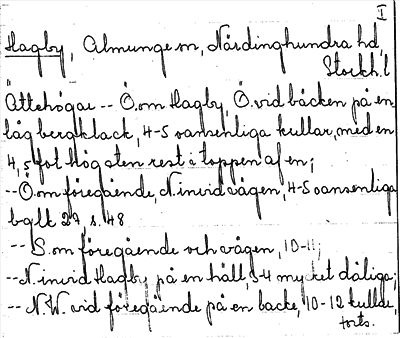 I
Hagby, Almunge sn, Närdinghundra hd,
Stockh. l
Ättehögar -- Ö. om Hagby, Ö. vid bäcken på en
låg bergklack, 4-5 oansenliga kullar, med en
4,5 fot hög sten rest i toppen af en;
-- Ö. om föregående, N. invid vägen, 4-5 oansenliga
bglt 29, s. 48
-- S. om föregående och vägen, 10-11;
-- N. invid Hagby på en häll, 3-4 mycket dåliga;
-- N.W. vid föregående på en backe, 10-12 kullar,
forts.